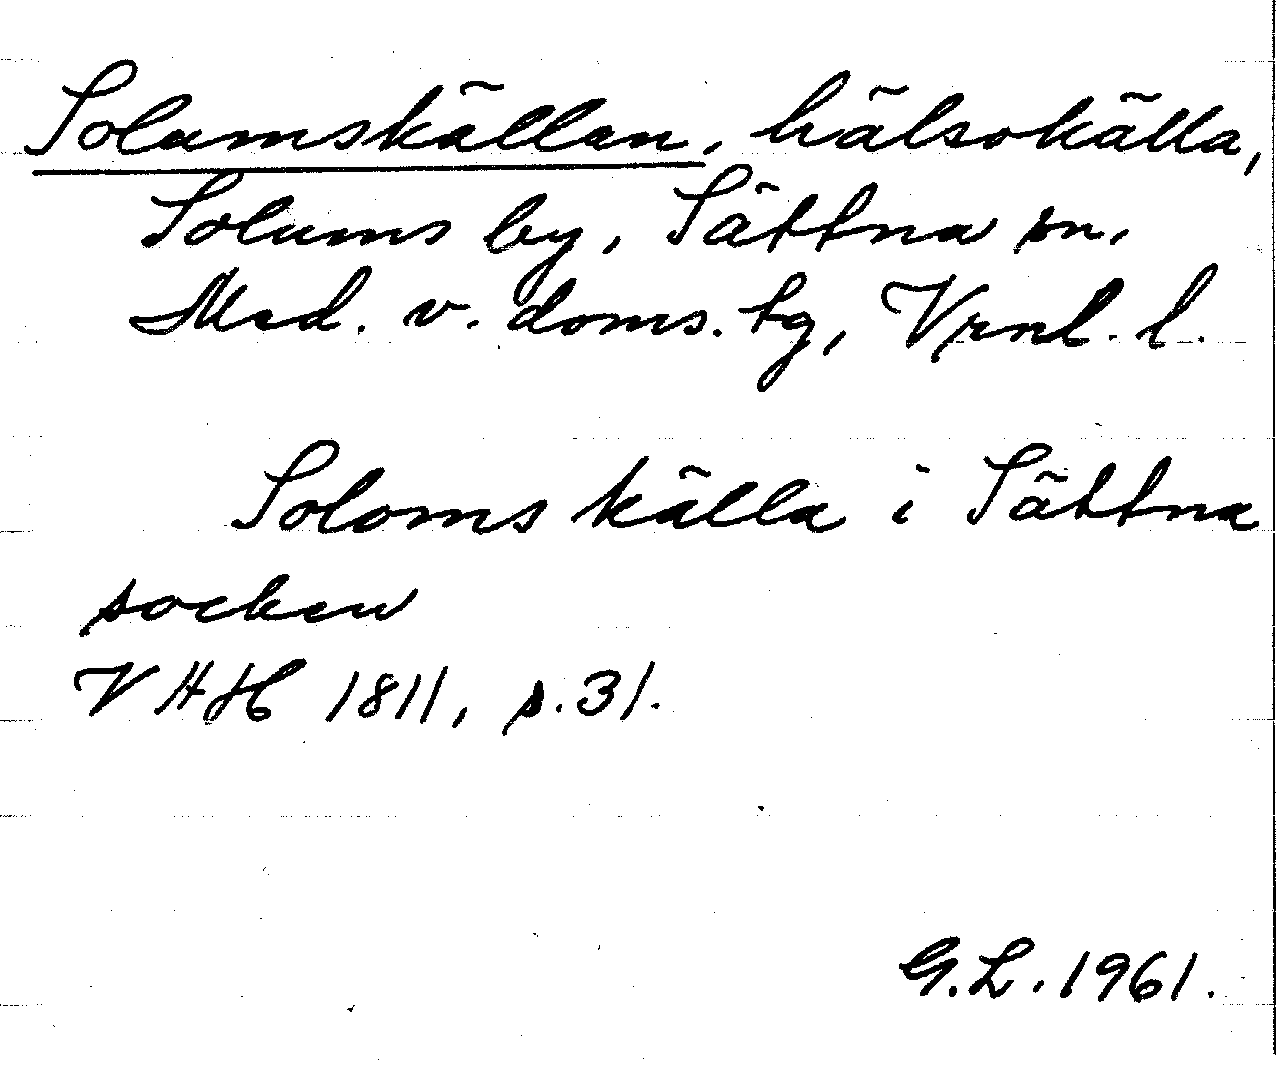 Solumskällan, hälsokälla,
Solums by, Sättna sn,
Med. v. doms. tg, Vrnl. l.
Soloms källa i Sättna
socken
V H H 1811, s. 31.
G.L. 1961.